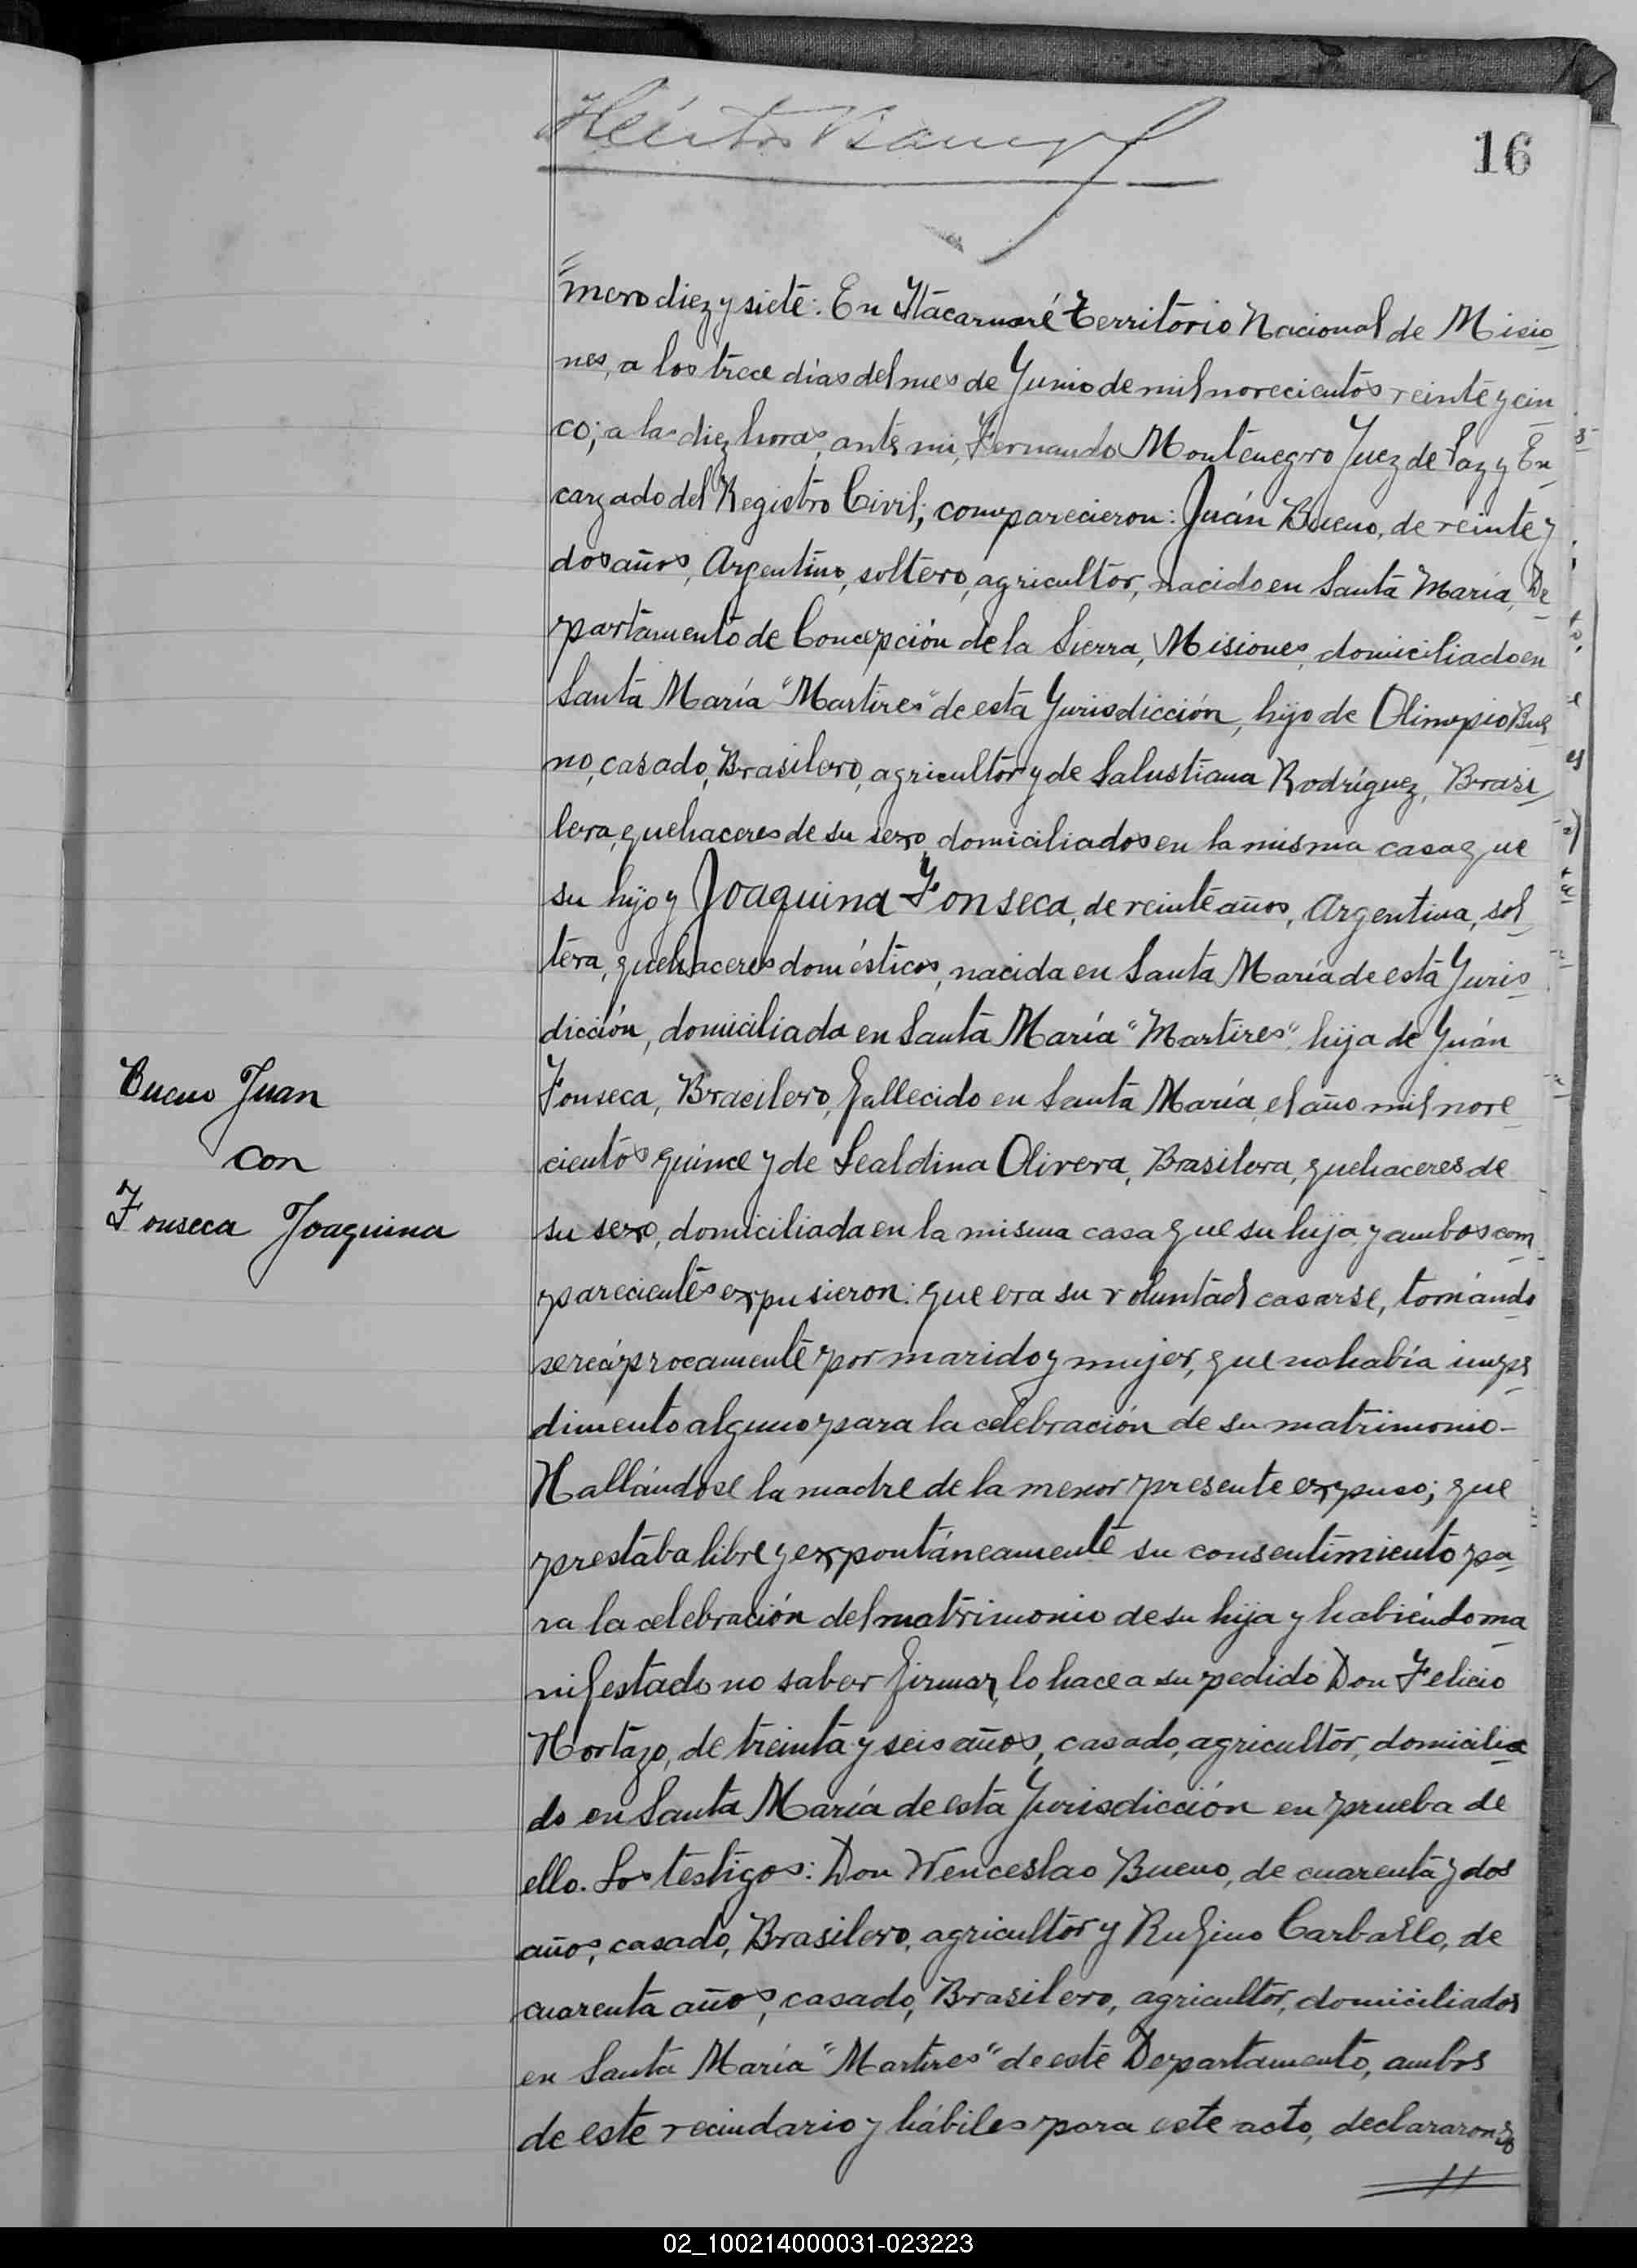 16
mero diez y siete: En Itacaruaré Territorio Nacional de Misio
nes, a los trece días del mes de Junio de mil novecientos veinte y cin
co; a las diez horas, ante mi, Fernando Montenegro Juez de Paz y En
cargado del Registro Civil; comparecieron: Juán Bueno, de veinte y
dos años, Argentino, soltero, agricultor, nacido en Santa María, De
partamento de Concepción de la Sierra, Misiones, domiciliado en
Santa María "Martires" de esta Jurisdicción, hijo de Olimpio Bue
no, casado, Brasilero, agricultor y de Salustiana Rodríguez, Brasi
lera, quehaceres de su sexo, domiciliados en la misma casa que
su hijo y Joaquina Fonseca, de veinte años, Argentina, sol
tera, quehaceres domésticos, nacida en Santa María de esta Juris
dicción, domiciliada en Santa María "Martires", hija de Juán
Bueno Juan
con
Fonseca Joaquina
Fonseca, Brasilero, fallecido en Santa María, el año mil nove
cientos quince y de Lealdina Olivera, Brasilera, quehaceres de
su sexo, domiciliada en la misma casa que su hija y ambos com
parecientes expusieron: que era su voluntad casarse, tomándo
se recíprocamente por marido y mujer, que no había impe
dimento alguno para la celebración de su matrimonio-
Hallándose la madre de la menor presente expuso; que
prestaba libre y expontáneamente su consentimiento pa
ra la celebración del matrimonio de su hija y habiéndo ma
nifestado no saber firmar, lo hace a su pedido Don Felicio
Hortazo, de treinta y seis años, casado, agricultor, domicilia
do en Santa María de esta Jurisdicción en prueba de
ello. Los testigos: Don Wenceslao Bueno, de cuarenta y dos
años, casado, Brasilero, agricultor y Rufino Carballo, de
cuarenta años, casado, Brasilero, agricultor, domiciliados
en Santa María "Martires" de este Departamento, ambos
de este vecindario y hábiles para este acto, declararon
02_100214000031-023223